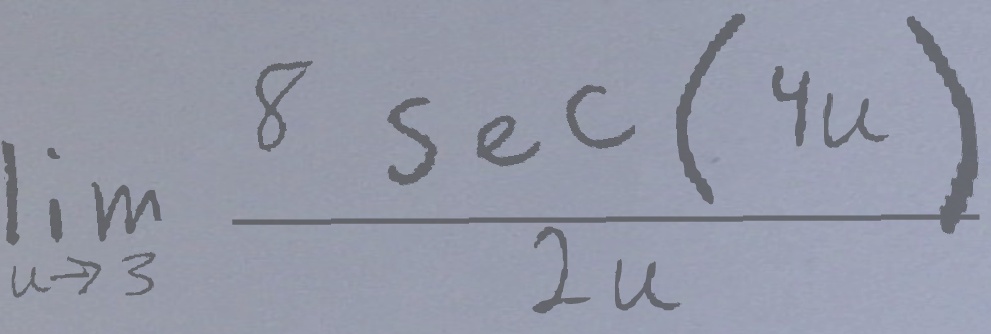 lim u→3 8 sec(4u) / 2u